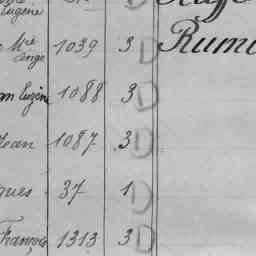 Eugène
Mie Ange 1039 3 D Rum
an Eugène 1088 3 D
Jean 1087 3 D
ques 37 1 D
François 1313 3 D